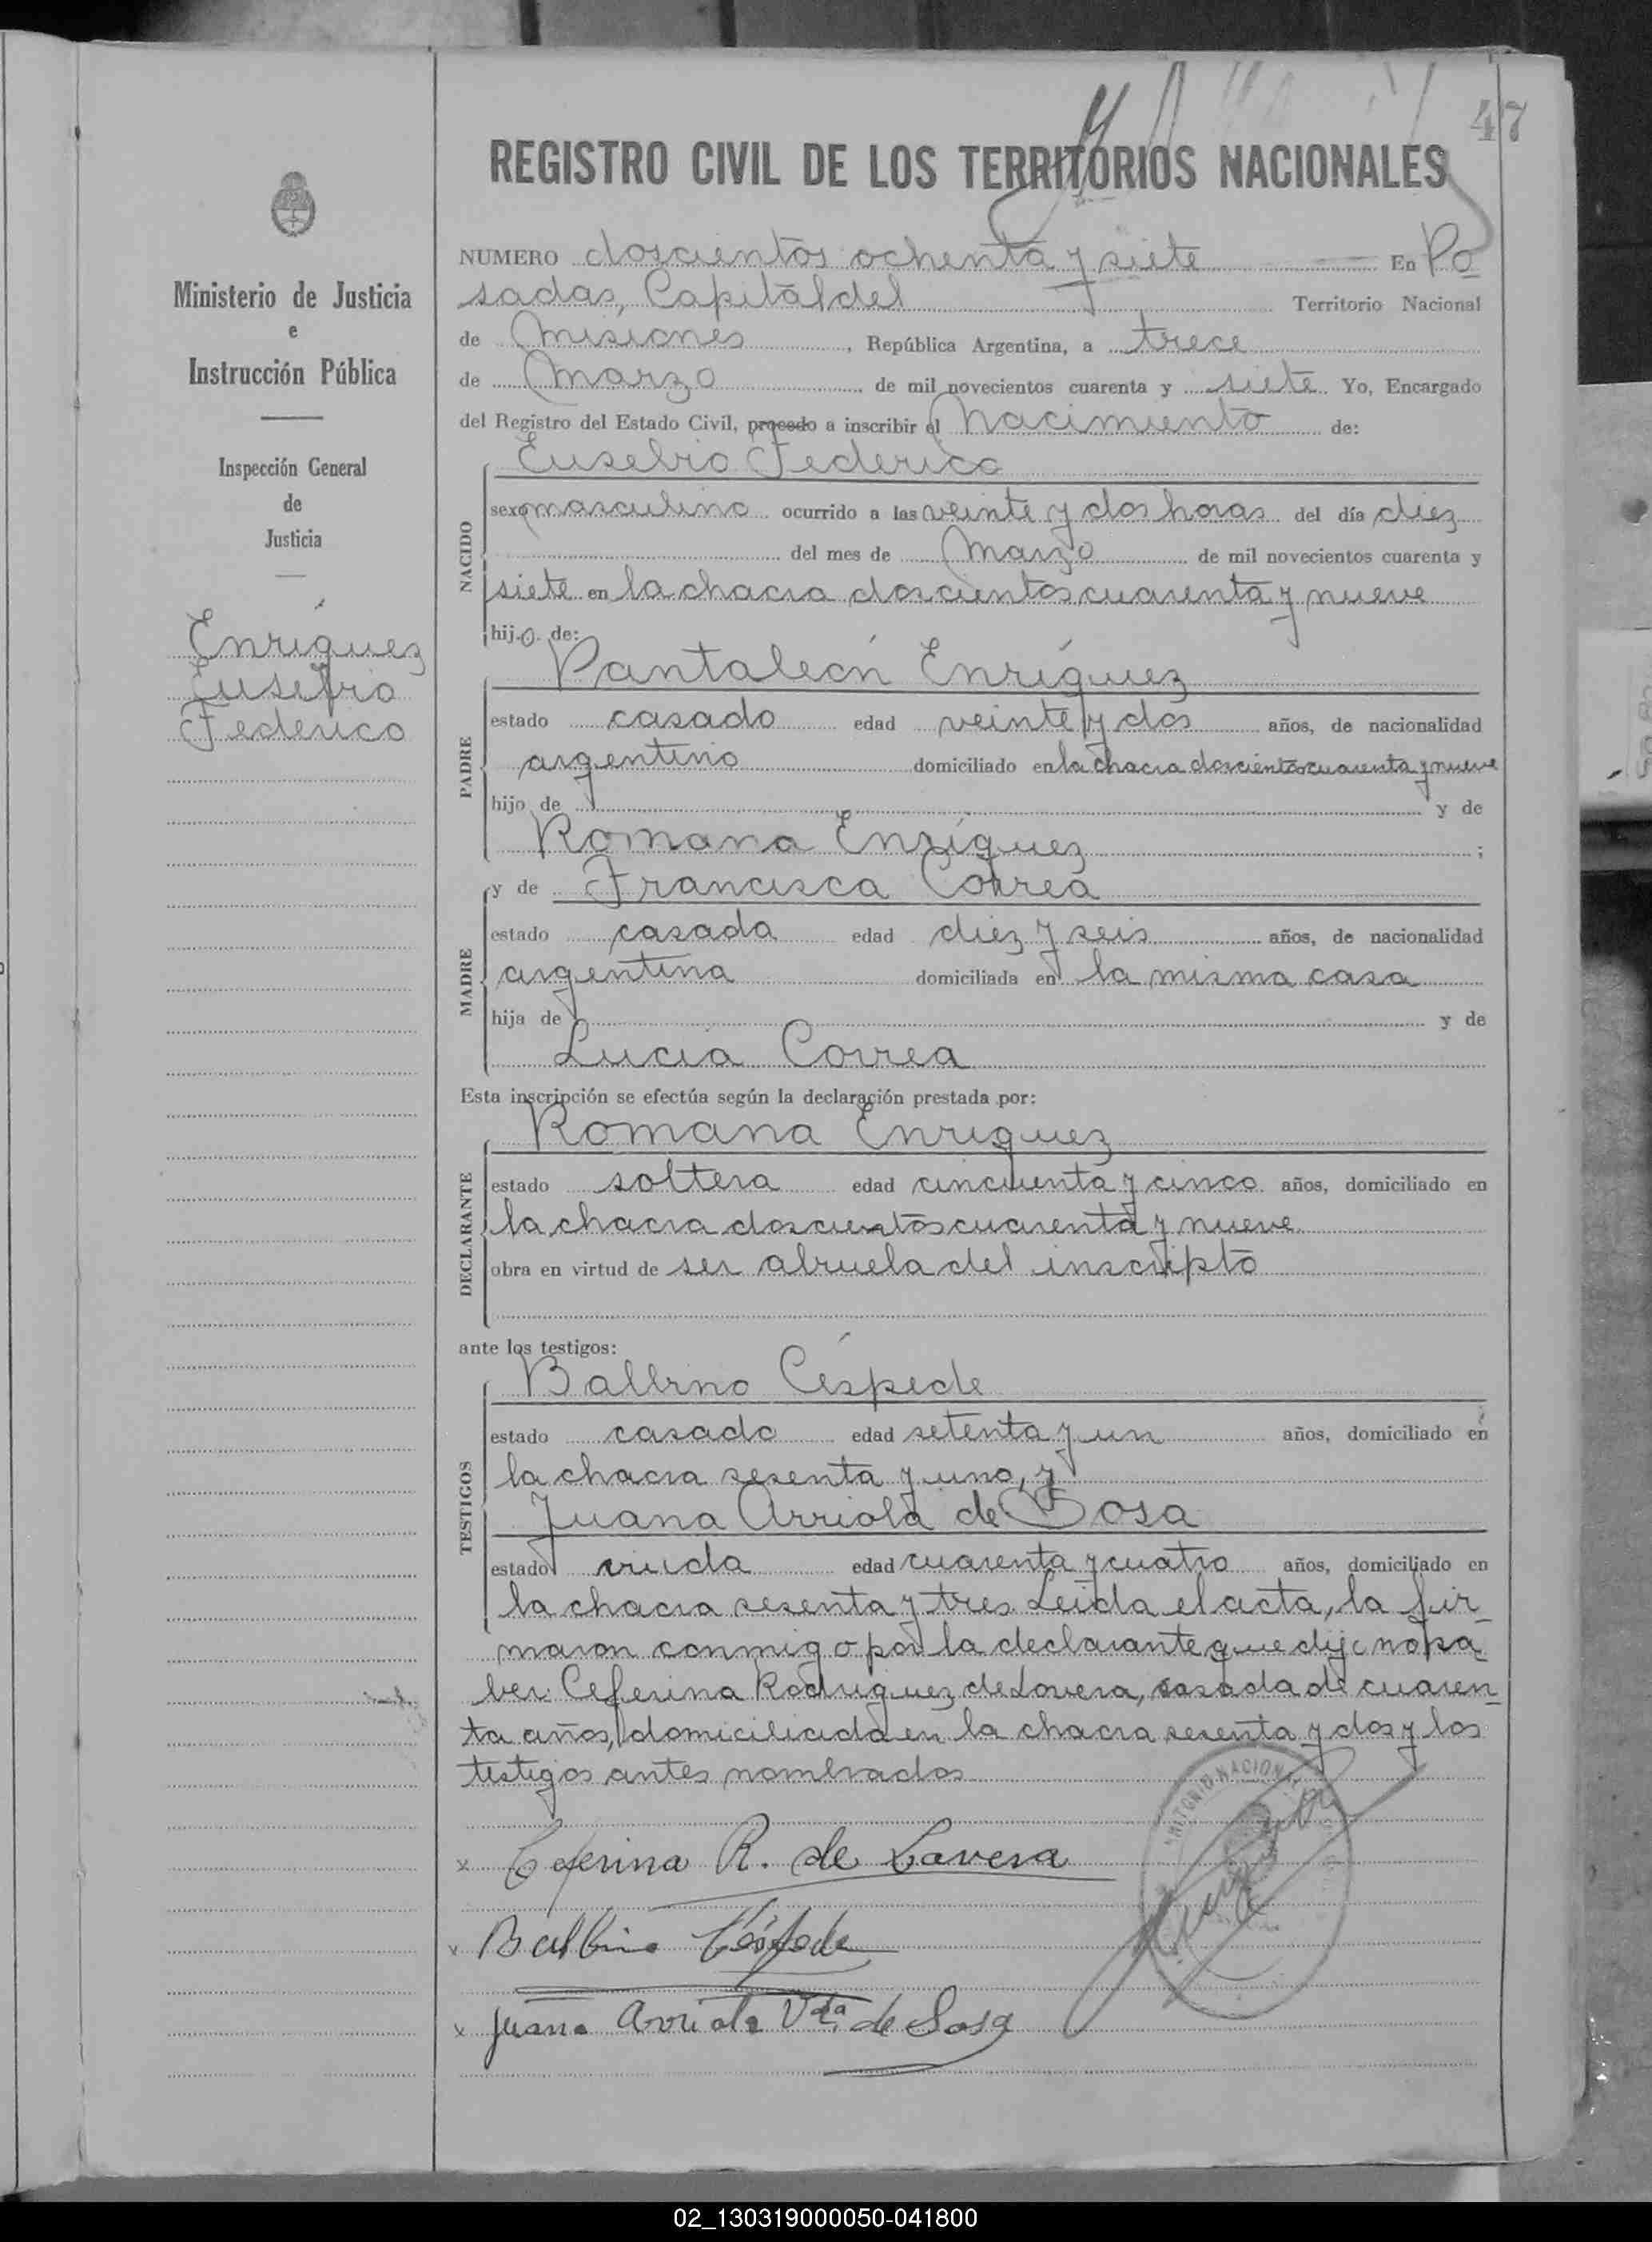 47
REGISTRO CIVIL DE LOS TERRITORIOS NACIONALES
Ministerio de Justicia
e
Instrucción Pública
Inspección General
de
Justicia
Enríquez
Eusebio
Federico
NUMERO doscientos ochenta y siete En Po
sadas, Capital del Territorio Nacional
de Misiones, República Argentina, a trece
de Marzo de mil novecientos cuarenta y siete Yo, Encargado
del Registro del Estado Civil, procedo a inscribir el Nacimiento de:
Eusebio Federico
NACIDO
sexo masculino ocurrido a las veinte y dos horas del día diez
del mes de Marzo de mil novecientos cuarenta y
siete en la chacra doscientos cuarenta y nueve
hijo de:
Pantaleón Enríquez
PADRE
estado casado edad veinte y dos años, de nacionalidad
argentino domiciliado en la chacra doscientos cuarenta y nueve
hijo de y de
Romana Enríquez ;
MADRE
y de Francisca Correa
estado casada edad diez y seis años, de nacionalidad
argentina domiciliada en la misma casa
hija de y de
Lucia Correa
Esta inscripción se efectúa según la declaración prestada por:
Romana Enriquez
DECLARANTE
estado soltera edad cincuenta y cinco años, domiciliado en
la chacra doscientos cuarenta y nueve
obra en virtud de ser abuela del inscripto
ante los testigos:
Balbino Céspede
TESTIGOS
estado casado edad setenta y un años, domiciliado en
la chacra sesenta y uno, y
Juana Arriola de Sosa
estado viuda edad cuarenta y cuatro años, domiciliado en
la chacra sesenta y tres. Leida el acta, la fir-
maron conmigo por la declarante que dijo no sa-
ber Ceferina Rodriguez de Lovera, casada de cuaren-
ta años, domiciliada en la chacra sesenta y dos y los
testigos antes nombrados
x Ceferina R. de Lovera
x Balbino Céspede
x Juana Arriola Vda. de Sosa
TERRITORIO NACIONAL
02_130319000050-041800